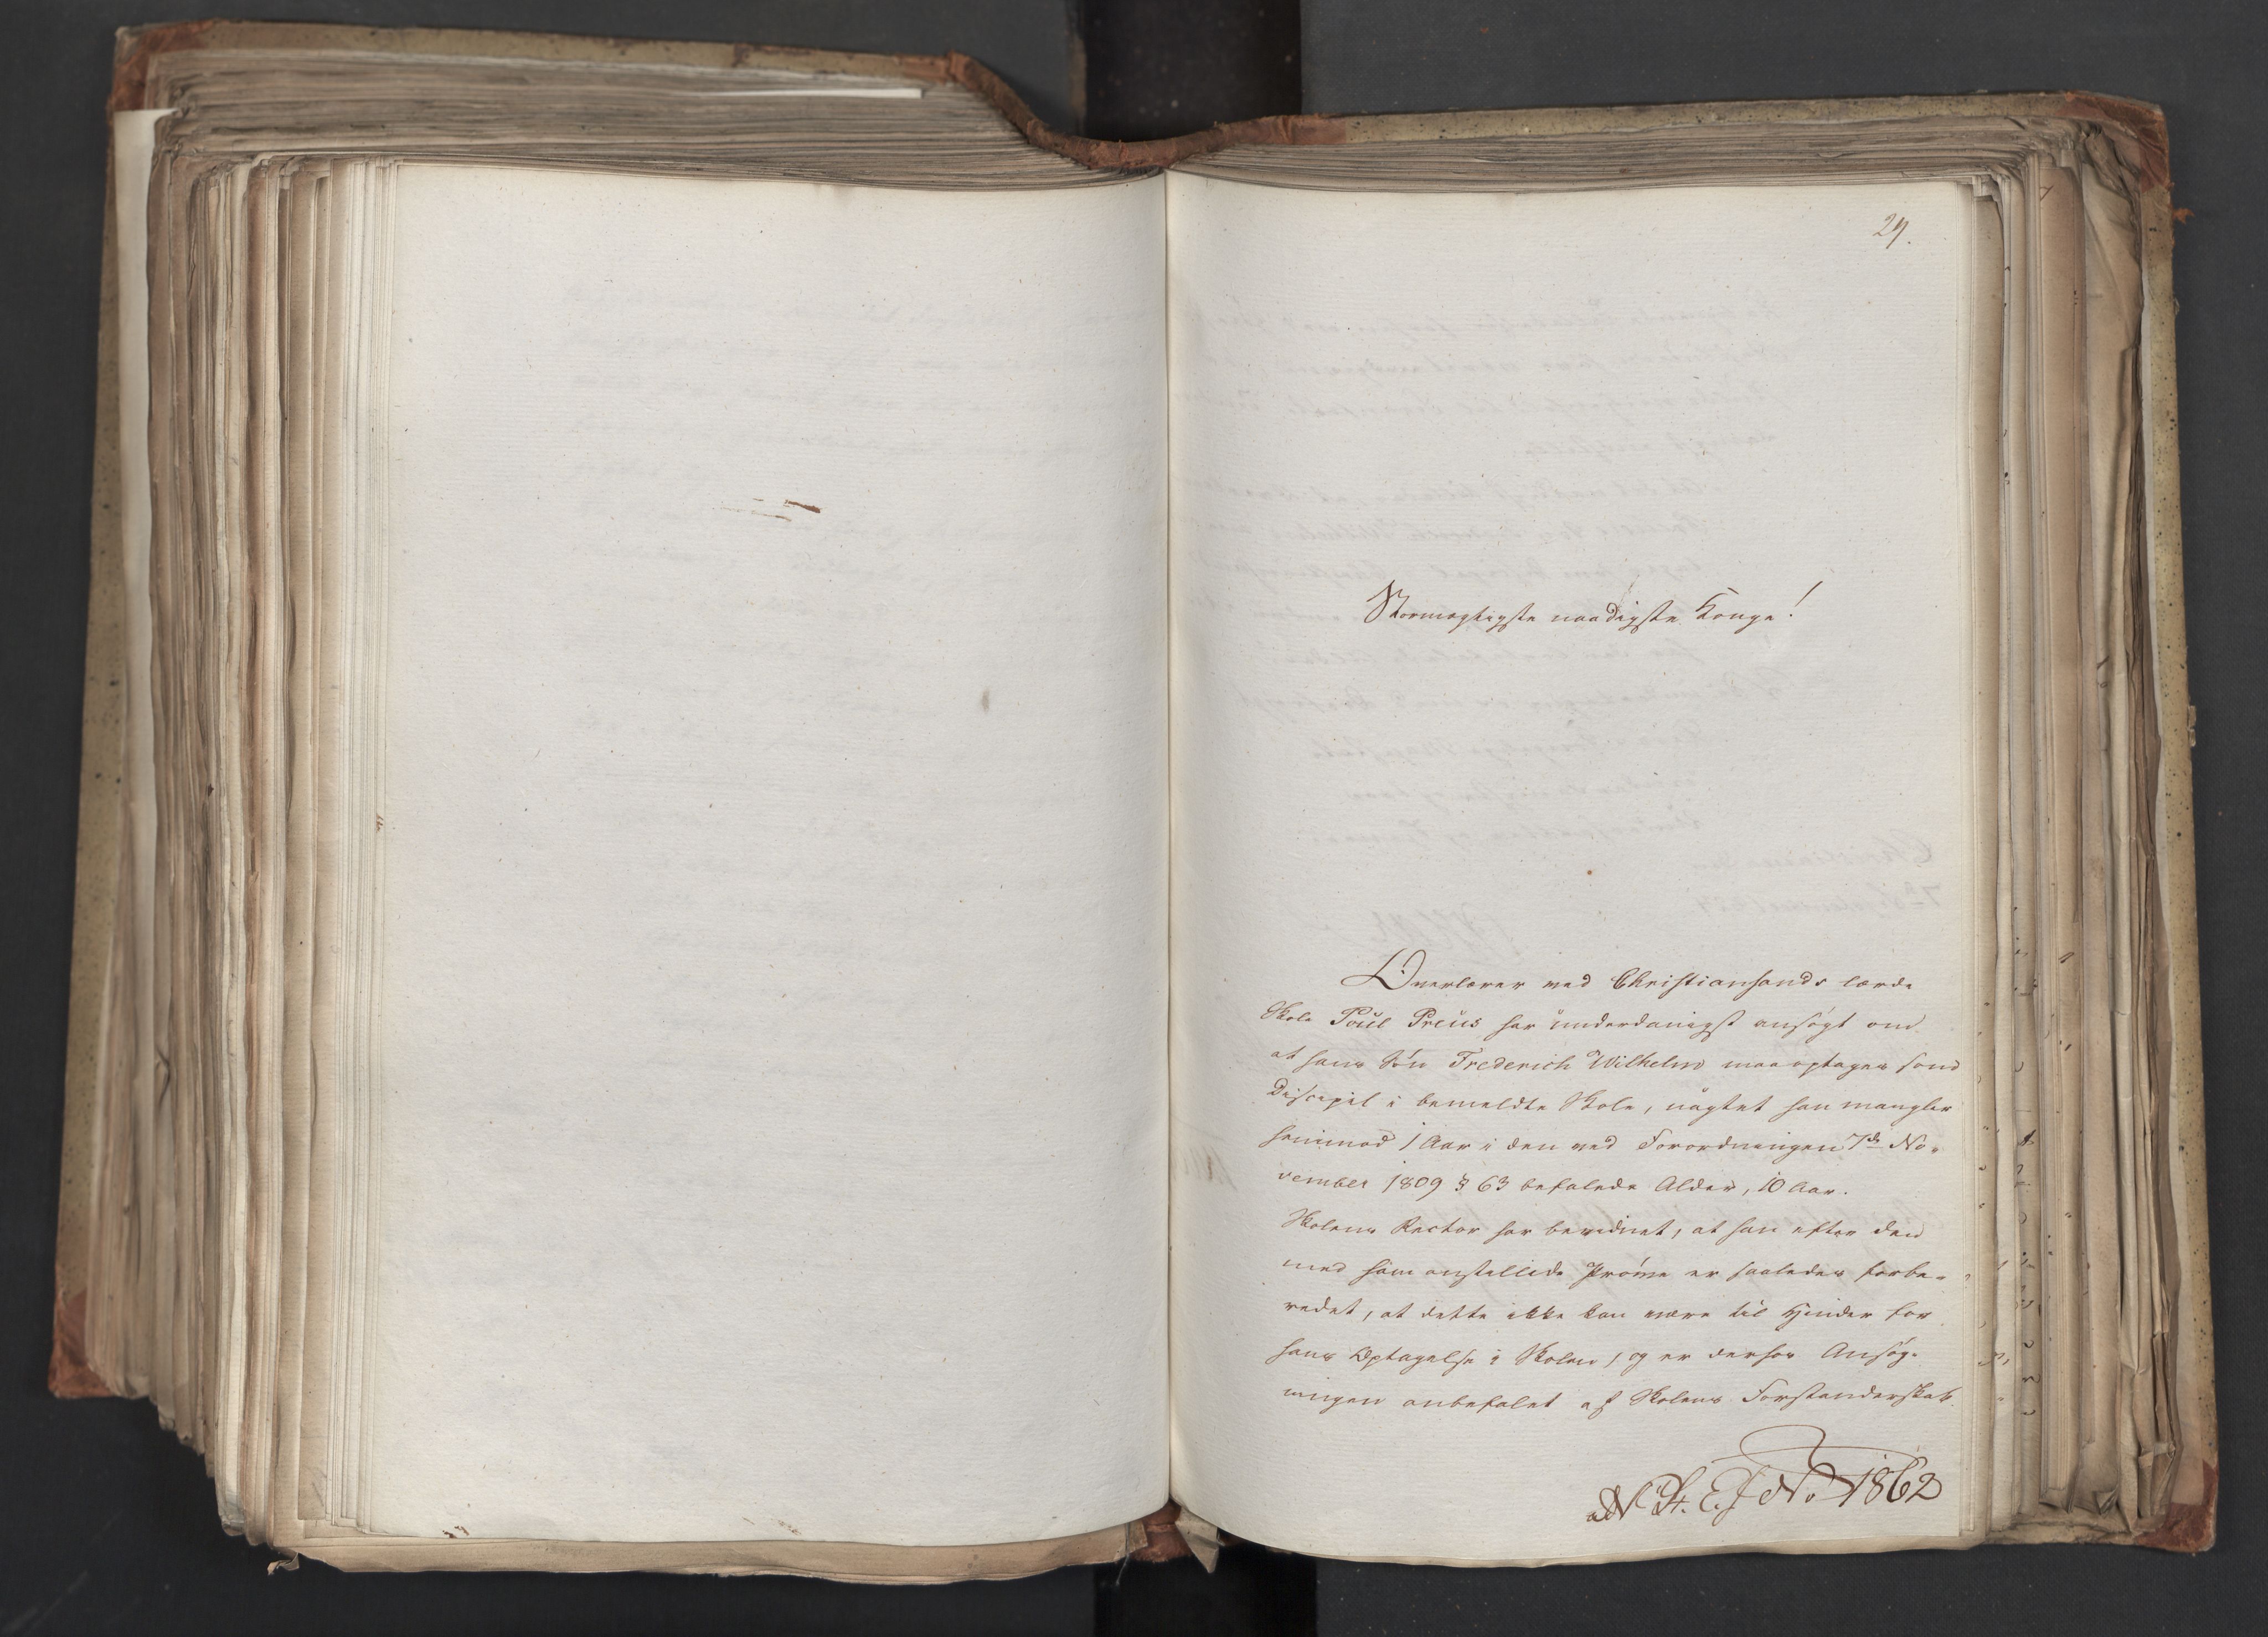 29.
Stormægtigste naadigste Konge!
Overlærer ved Christiansands lærde
Skole Paul Preus har underdanigst ansøgt om
at hans Søn Frederich Wilhelm maa optages som
Discipel i bemeldte Skole, uagtet han mangler
henimod 1 Aar i den ved Forordningen 7de No-
vember 1809 § 63 befalede Alder, 10 Aar.
Skolens Rector har bevidnet, at han efter den
med ham anstillede Prøve er saaledes forbe-
redet, at dette ikke kan være til Hinder for
hans Optagelse i Skolen, og er derhos Ansøg-
ningen anbefalet af Skolens Forstanderskab.
No 1862